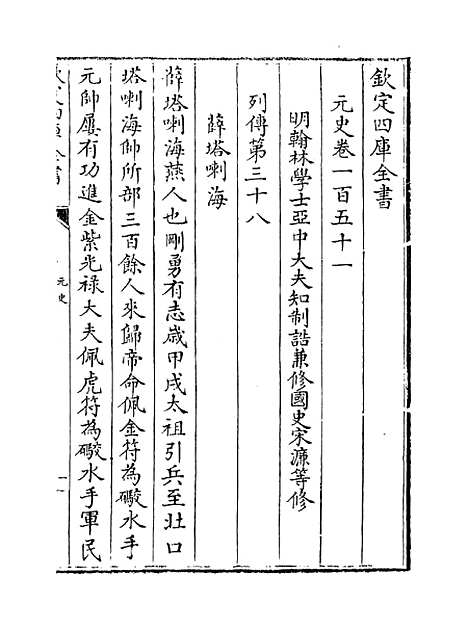 欽定四庫全書
元史卷一百五十一
明翰林學士亞中大夫知制誥兼修國史宋濂等修
列傳第三十八
薛塔喇海
薛塔喇海燕人也剛勇有志歲甲戌太祖引兵至北口
塔喇海帥所部三百餘人來歸帝命佩金符為礮水手
元帥屢有功進金紫光祿大夫佩虎符為礮水手軍民
元史
一